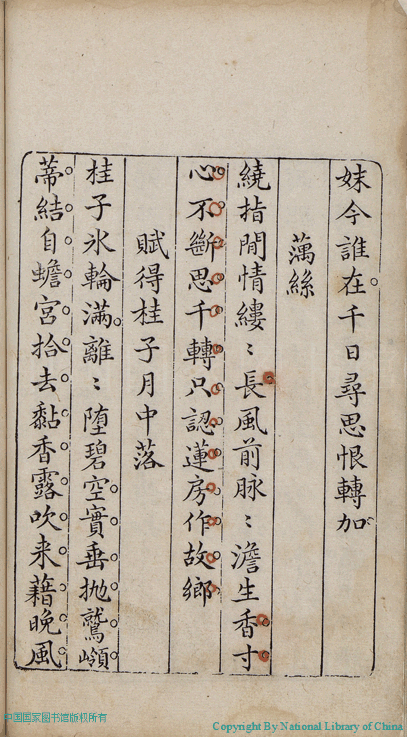 妹今誰在千日尋思恨轉加
藕絲
繞指閒情縷〻長風前脉〻澹生香寸
心不斷思千轉只認蓮房作故鄉
賦得桂子月中落
桂子氷輪滿離〻堕碧空實垂抛鷲嶺
蒂結自蟾宮拾去黏香露吹来藉晚風
中国国家图书馆版权所有
Copyright By National Library of China